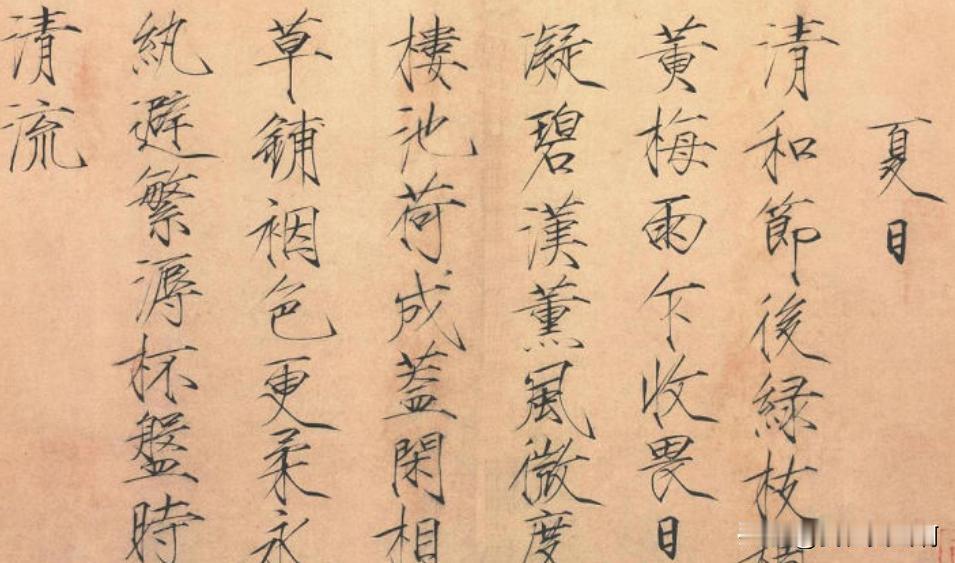 夏日
清和節後綠枝
黃梅雨乍收畏日
凝碧漢薰風微度
樓池荷成蓋閑相
草鋪裀色更柔永
紈避繁溽杯盤時
清流